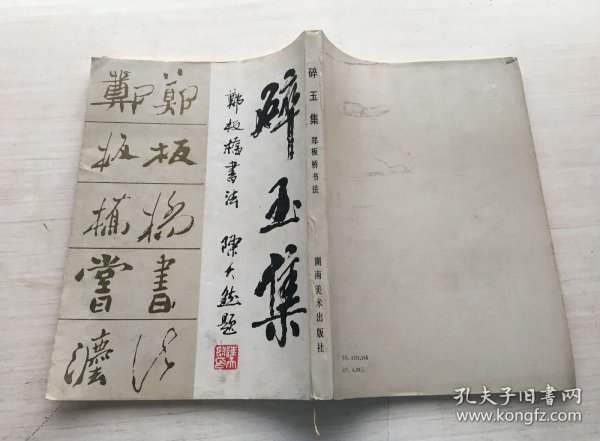 鄭鄭
板板
橋橋
書書
灋法
碎玉集
鄭板橋書法 陳大熊题
碎玉集 郑板桥书法
湖南美术出版社
孔夫子旧书网
www.kongfz.com